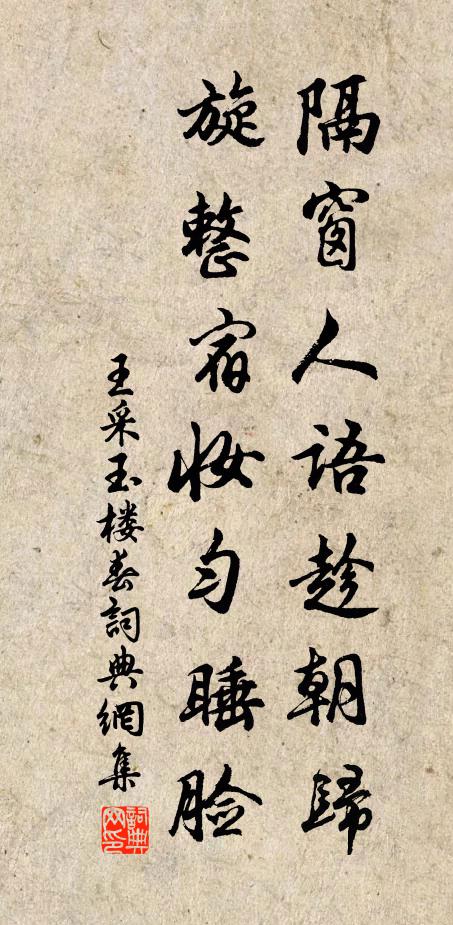 隔窗人语趁朝归
旋整宿妆匀睡脸
王采玉楼春詞典網集
詞典網印